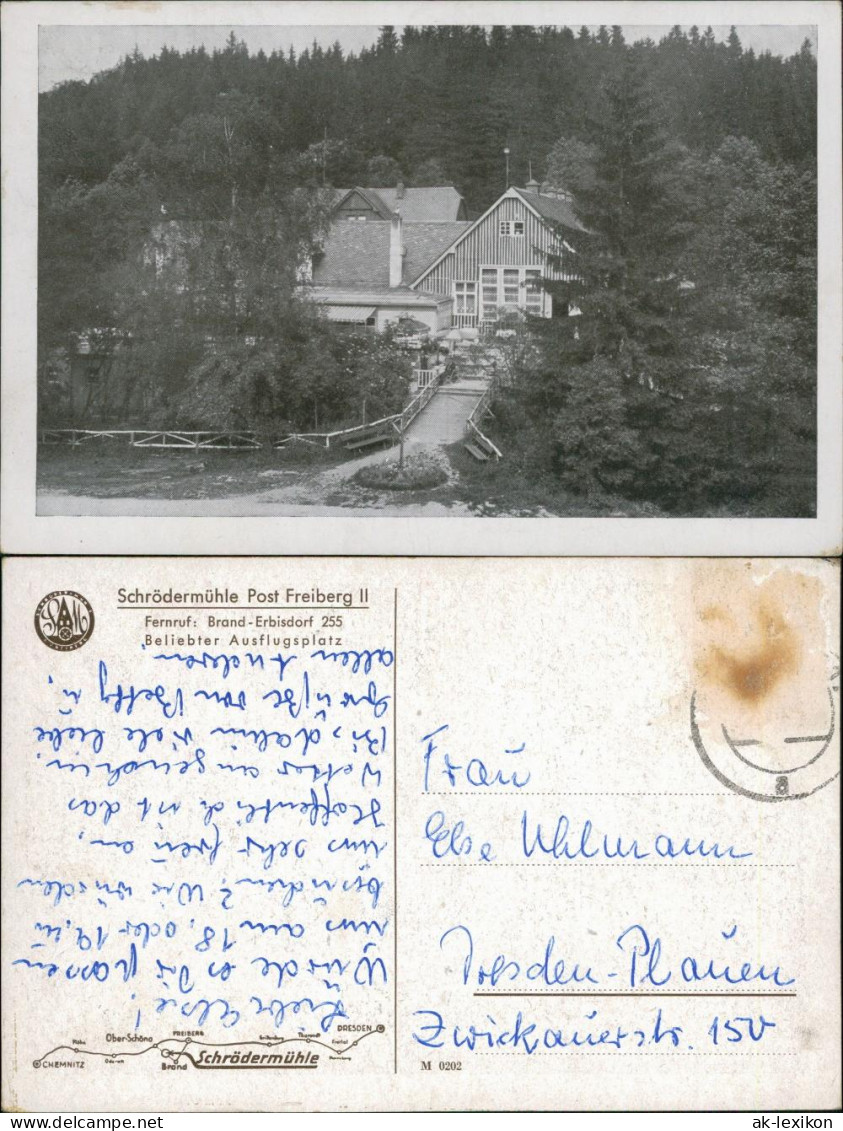 Schrödermühle Post Freiberg II
Fernruf: Brand-Erbisdorf 255
Beliebter Ausflugsplatz
Liebe Else!
Würde es Dir passen
uns am 18. oder 19. zu
besuchen? Wir würden
uns sehr freuen,
Hoffentlich ist das
Wetter angenehm.
Bis dahin viele liebe
Grüße von Betty u.
allen Anderen
Frau
Else Uhlmann
Dresden-Plauen
Zwickauerstr. 150
CHEMNITZ
Ober-Schöna
FREIBERG
Brand
Schrödermühle
Tharandt
DRESDEN
M 0202
a
www.delcampe.net
ak-lexikon